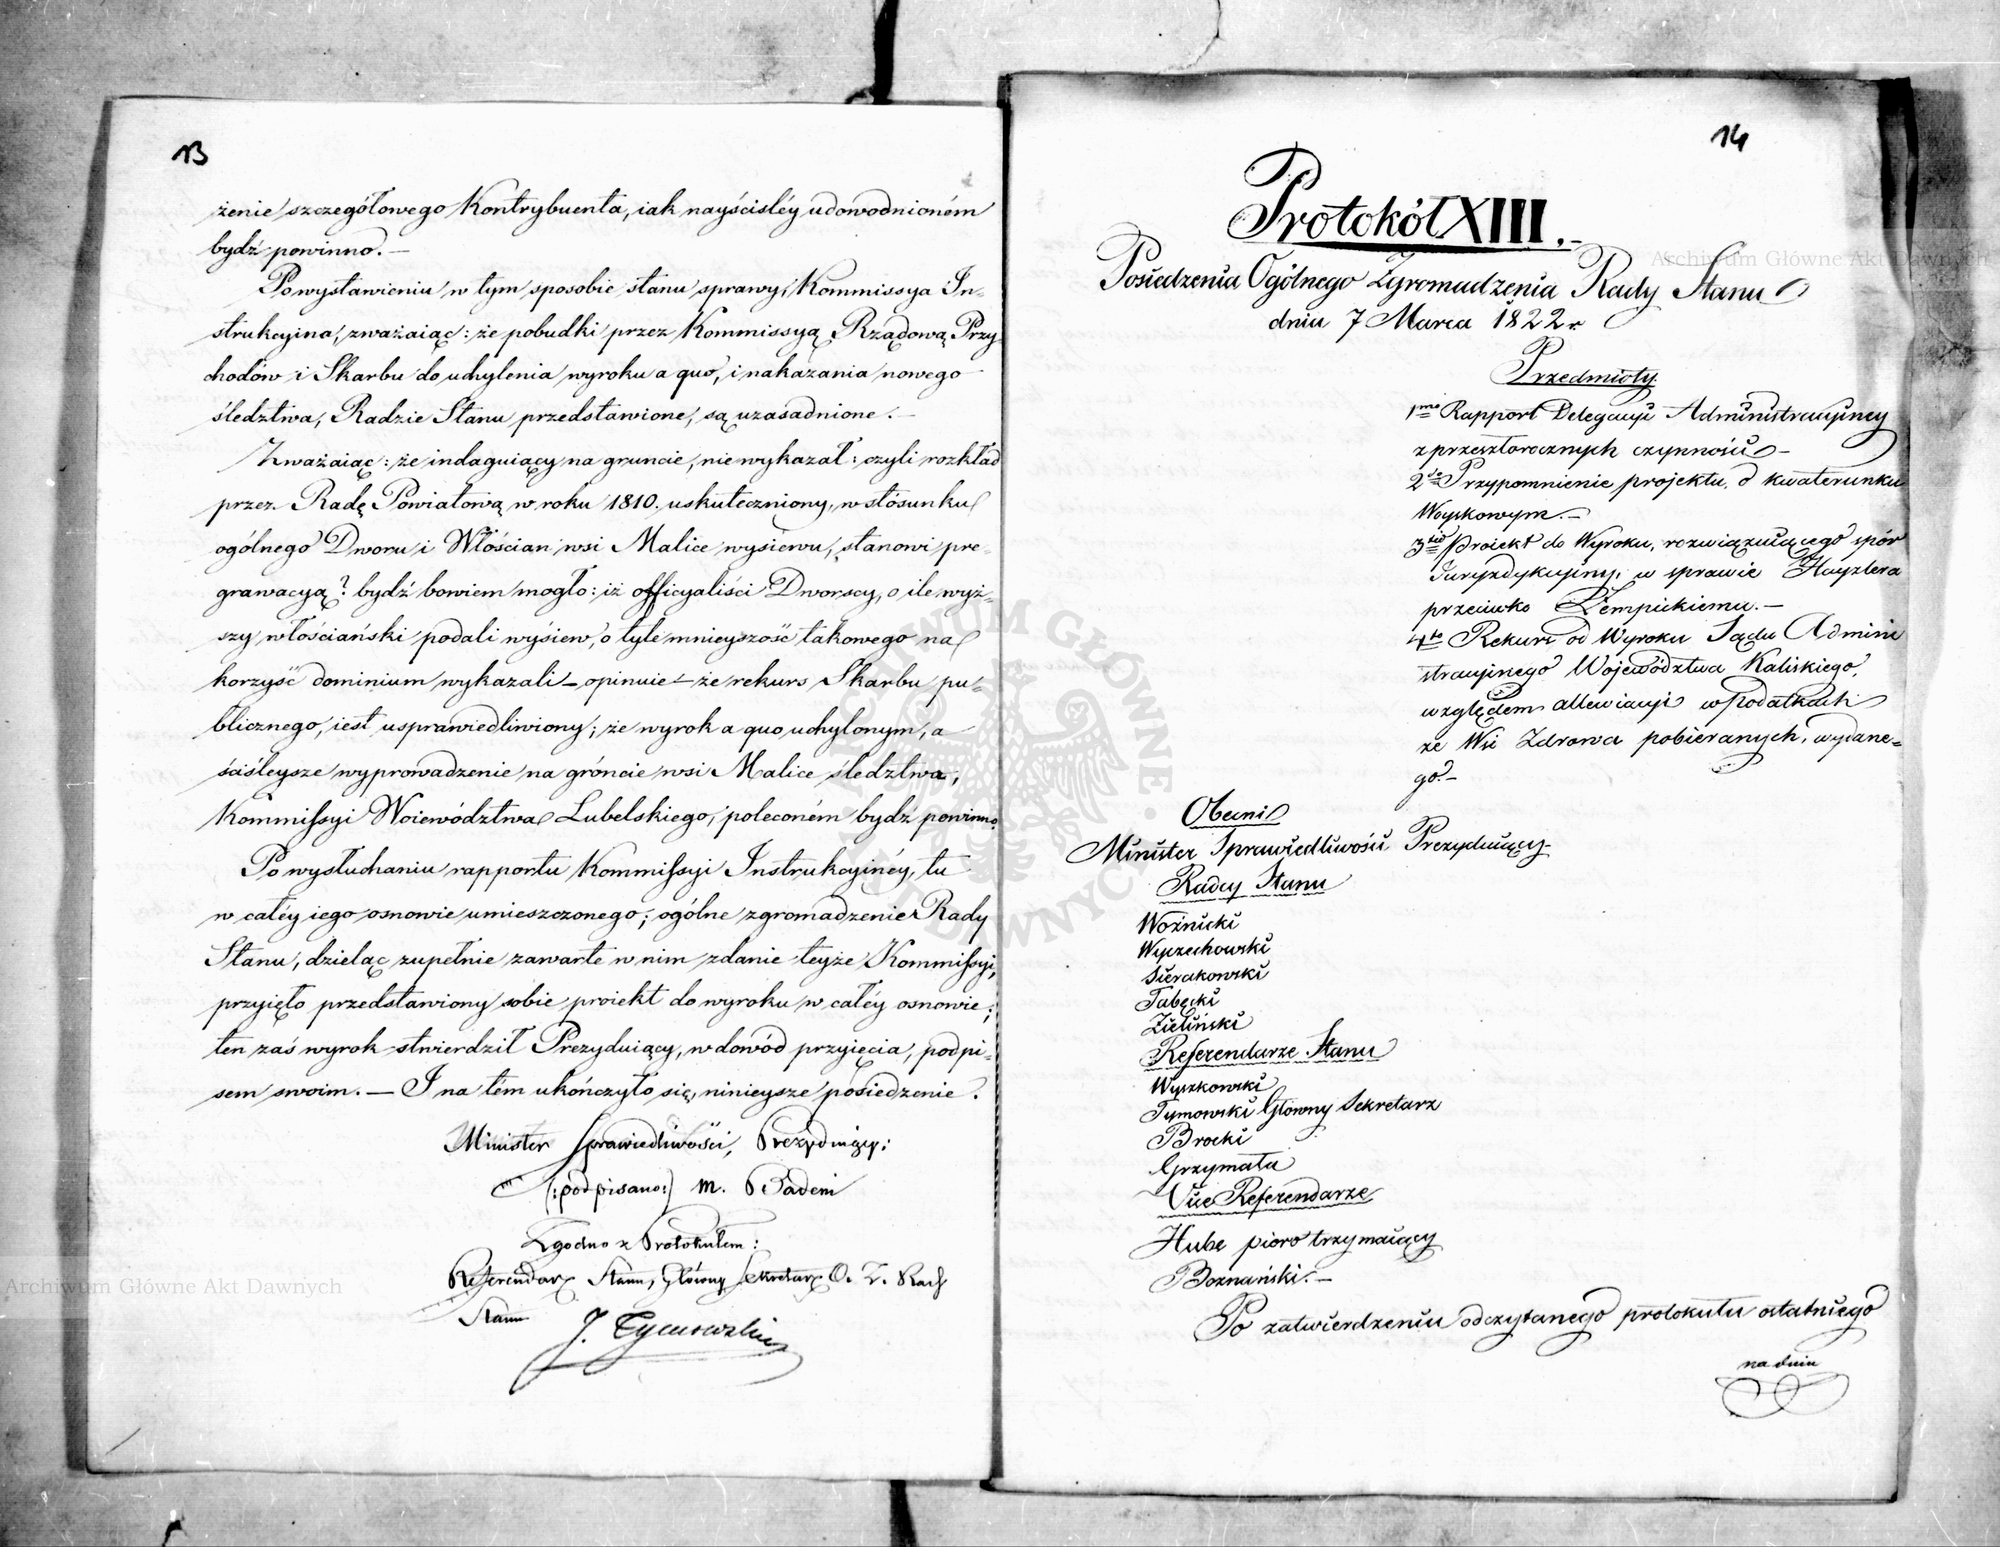 13
żenie szczegółowego Kontrybuenta, iak nayściśléy udowodnioném
bydź powinno. —
Po wystawieniu w tym sposobie stanu sprawy, Kommissya In-
strukcyina, zważaiąc: że pobudki przez Kommissyą Rządową Przy
chodów i Skarbu do uchylenia wyroku a quo, i nakazania nowego
śledztwa, Radzie Stanu przedstawione, są uzasadnione. —
Zważaiąc: że indaguiący na gruncie, nie wykazał: czyli rozkład
przez Radę Powiatową w roku 1810. uskuteczniony, w stósunku
ogólnego Dworu i Włościan wsi Malice wysiewu, stanowi pre-
grawacyą? bydź bowiem mogło: iż officyaliści Dworscy, o ile wyż-
szy włościański podali wysiew, o tyle mnieyszość takowego na
korzyść dominium wykazali — opiniuie — że rekurs Skarbu pu-
blicznego, iest usprawiedliwiony; że wyrok a quo uchylonym, a
ściśleysze wyprowadzenie na gróncie wsi Malice śledztwa,
Kommissyi Woiewództwa Lubelskiego, poleconém bydź powinno.
Po wysłuchaniu rapportu Kommissyi Instrukcyinéy, tu
w całéy iego osnowie umieszczonego; ogólne zgromadzenie Rady
Stanu, dzieląc zupełnie zawarte w nim zdanie teyże Kommissyi,
przyięło przedstawiony sobie proiekt do wyroku w całéy osnowie;
ten zaś wyrok stwierdził Prezyduiący, w dowód przyięcia, podpi-
sem swoim. — I na tém ukończyło się, ninieysze posiedzenie.
Minister Sprawiedliwości, Prezyduiący:
(:podpisano:) M. Badeni
Zgodno z Protokułem:
Referendarz Stanu, Główny Sekretarz O. Z. Rady
Stanu J. Tymowski
14
Protokół XIII.
Posiedzenia Ogólnego Zgromadzenia Rady Stanu
dnia 7 Marca 1822 r
Przedmioty
1mo Rapport Delegacyi Administracyiney
z przeszłorocznych czynności —
2do Przypomnienie projektu, o kwaterunku
Woyskowym. —
3tio Proiekt do Wyroku, rozwiązuiącego spór
Juryzdykcyiny, w sprawie Hayzlera
przeciwko Łempickiemu. —
4to Rekurs od Wyroku Sądu Admini
stracyinego Województwa Kaliskiego,
względem allewiacyi w Podatkach
ze Wsi Zdrowa pobieranych, wydane=
go. —
Obecni
Minister Sprawiedliwości Prezyduiący
Radcy Stanu
Woźnicki
Wyczechowski
Sierakowski
Tabęcki
Zieliński
Referendarze Stanu
Wyszkowski
Tymowski Główny Sekretarz
Brocki
Grzymała
Vice Referendarze
Hube pioro trzymaiący
Boznański. —
Po zatwierdzeniu odczytanego protokułu ostatniego
na dniu
Archiwum Główne Akt Dawnych
Archiwum Główne Akt Dawnych
ARCHIWUM GŁÓWNE AKT DAWNYCH